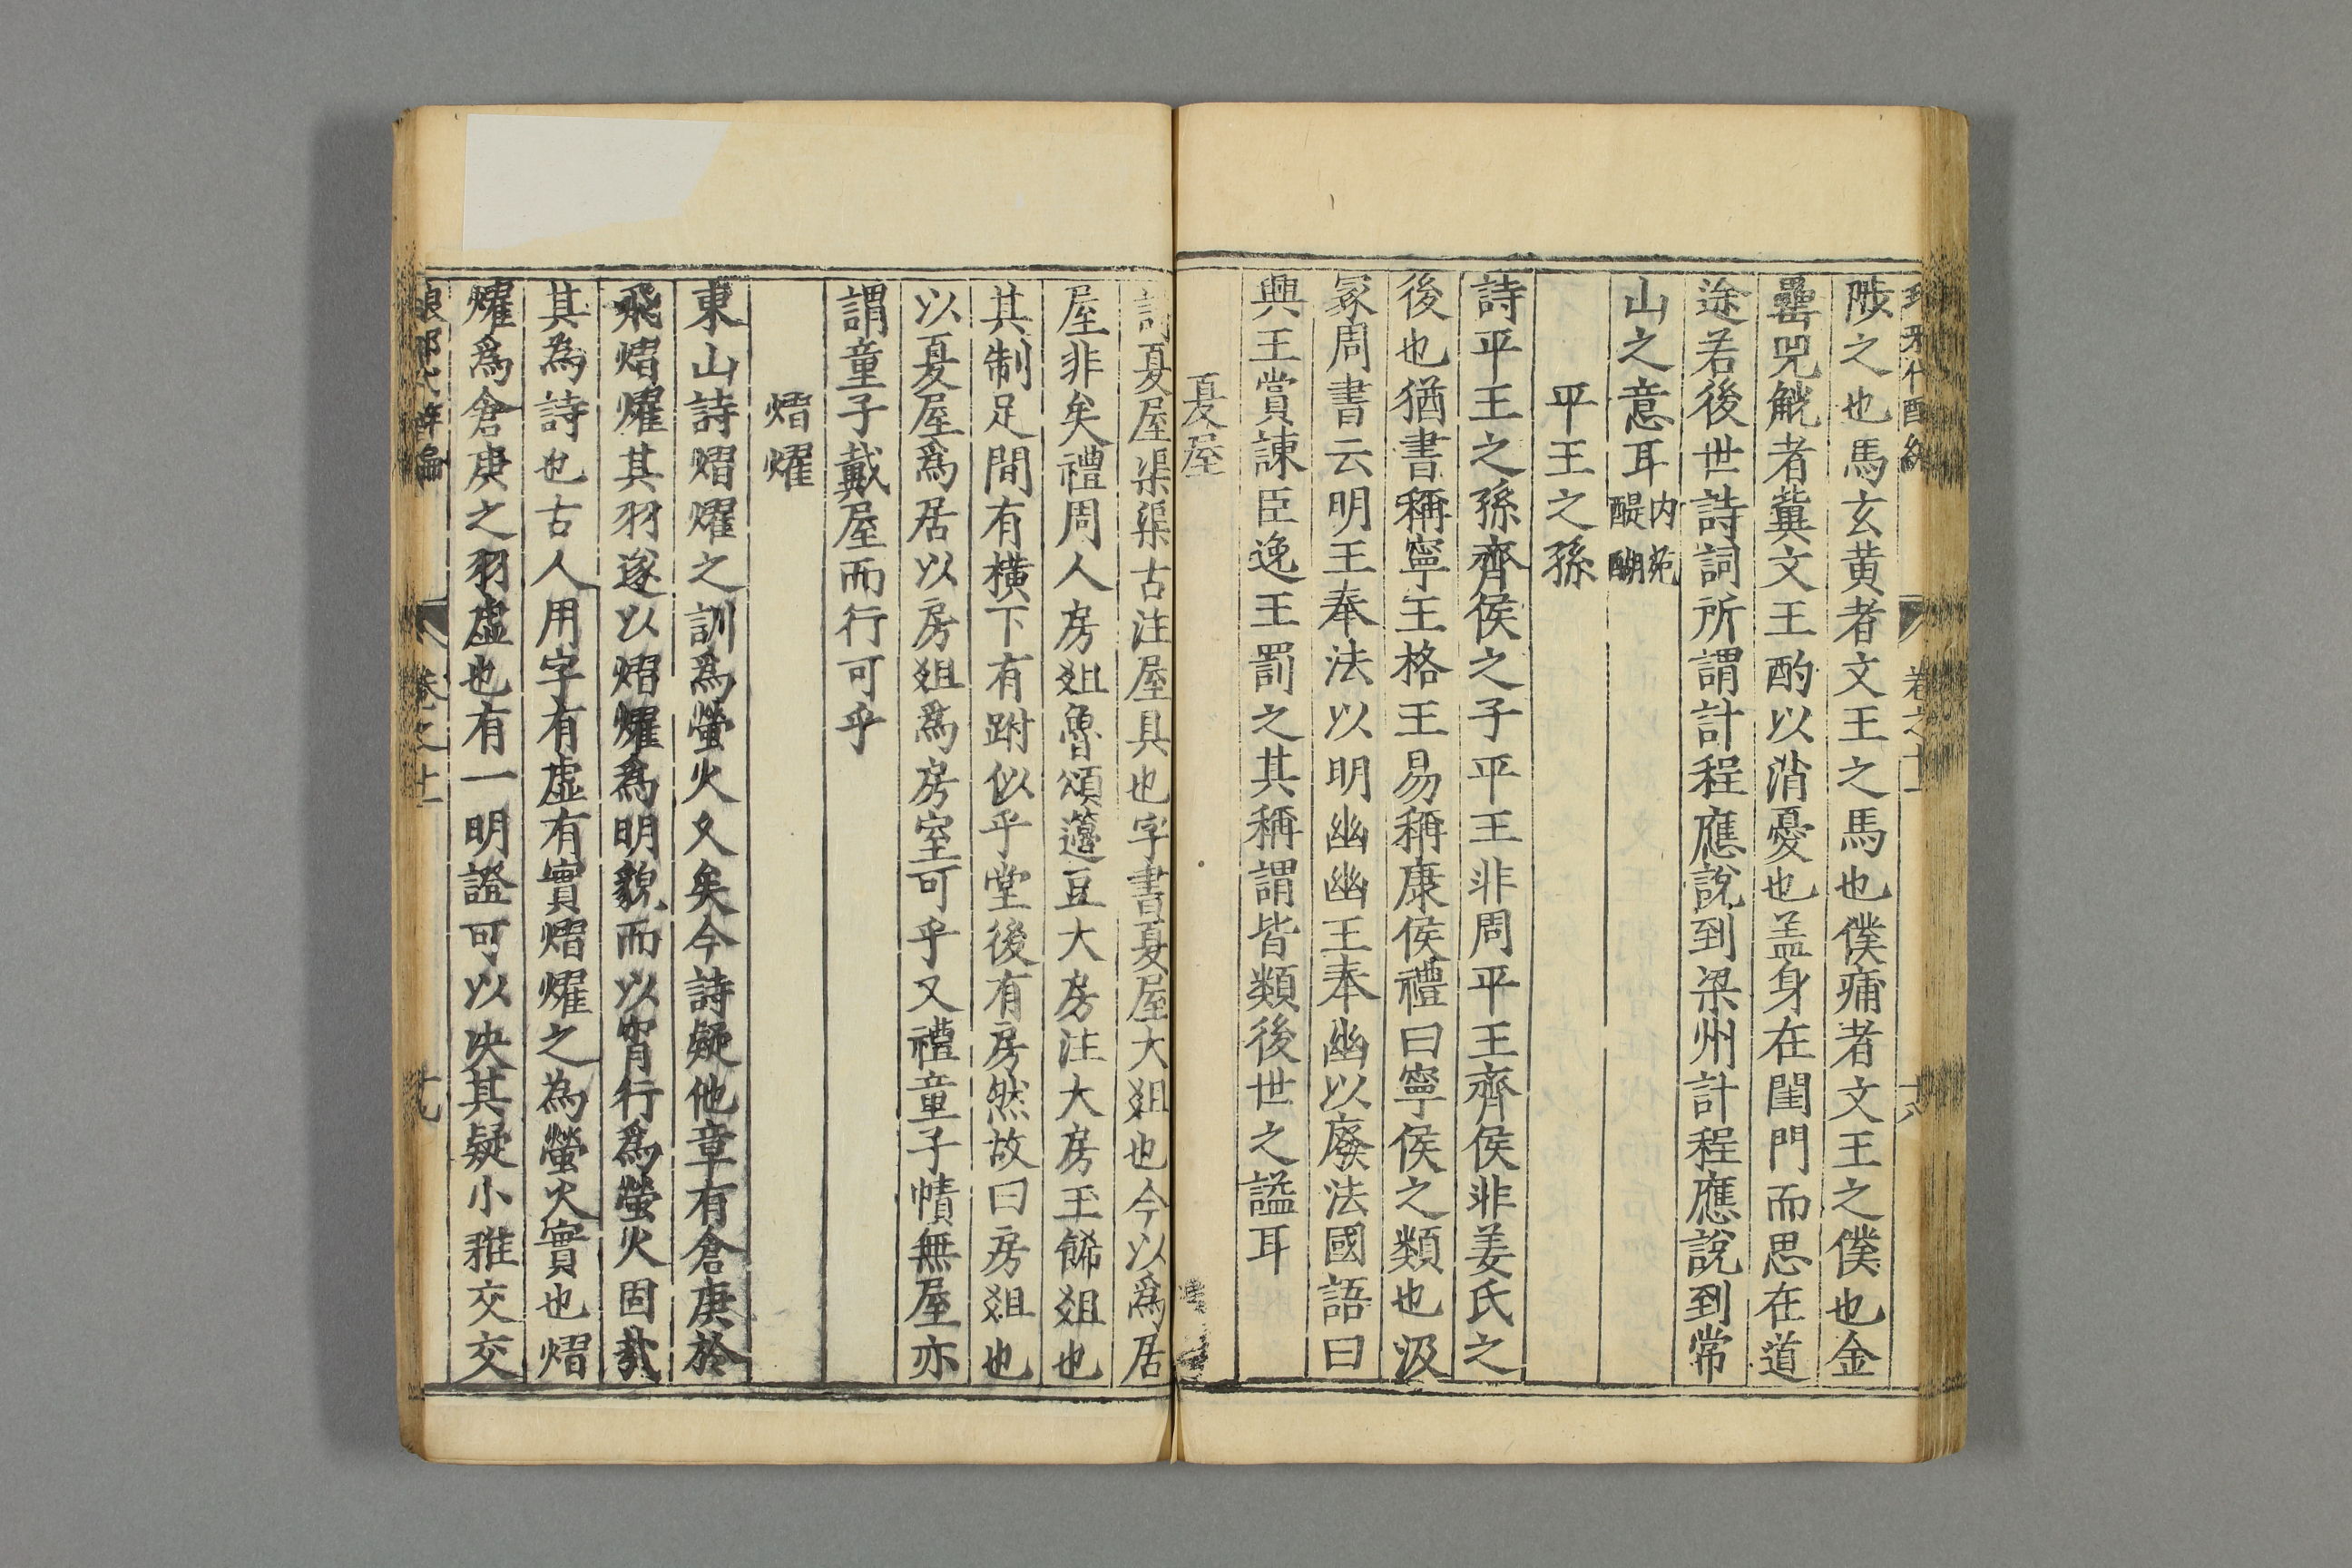 陟之也馬玄黃者文王之馬也僕痡者文王之僕也金
罍兕觥者冀文王酌以消憂也盖身在閨門而思在道
途若後世詩詞所謂計程應說到梁州計程應說到常
山之意耳内苑醍醐
平王之孫
詩平王之孫齊侯之子平王非周平王齊侯非姜氏之
後也猶書稱寧王格王易稱康侯禮曰寧侯之類也汲
冢周書云明王奉法以明幽幽王奉幽以廢法國語曰
興王賞諫臣逸王罰之其稱謂皆類後世之諡耳
夏屋
詩夏屋渠渠古注屋具也字書夏屋大俎也今以爲居
屋非矣禮周人房俎魯頌籩豆大房注大房玉餙俎也
其制足間有橫下有跗似乎堂後有房然故曰房俎也
以夏屋爲居以房俎爲房室可乎又禮童子幘無屋亦
謂童子戴屋而行可乎
熠燿
東山詩熠燿之訓爲螢火久矣今詩疑他章有倉庚於
飛熠燿其羽遂以熠燿爲明貌而以宵行爲螢火固哉
其為詩也古人用字有虛有實熠燿之為螢火實也熠
燿爲倉庚之羽虛也有一明證可以决其疑小雅交交
卷之十一
十九